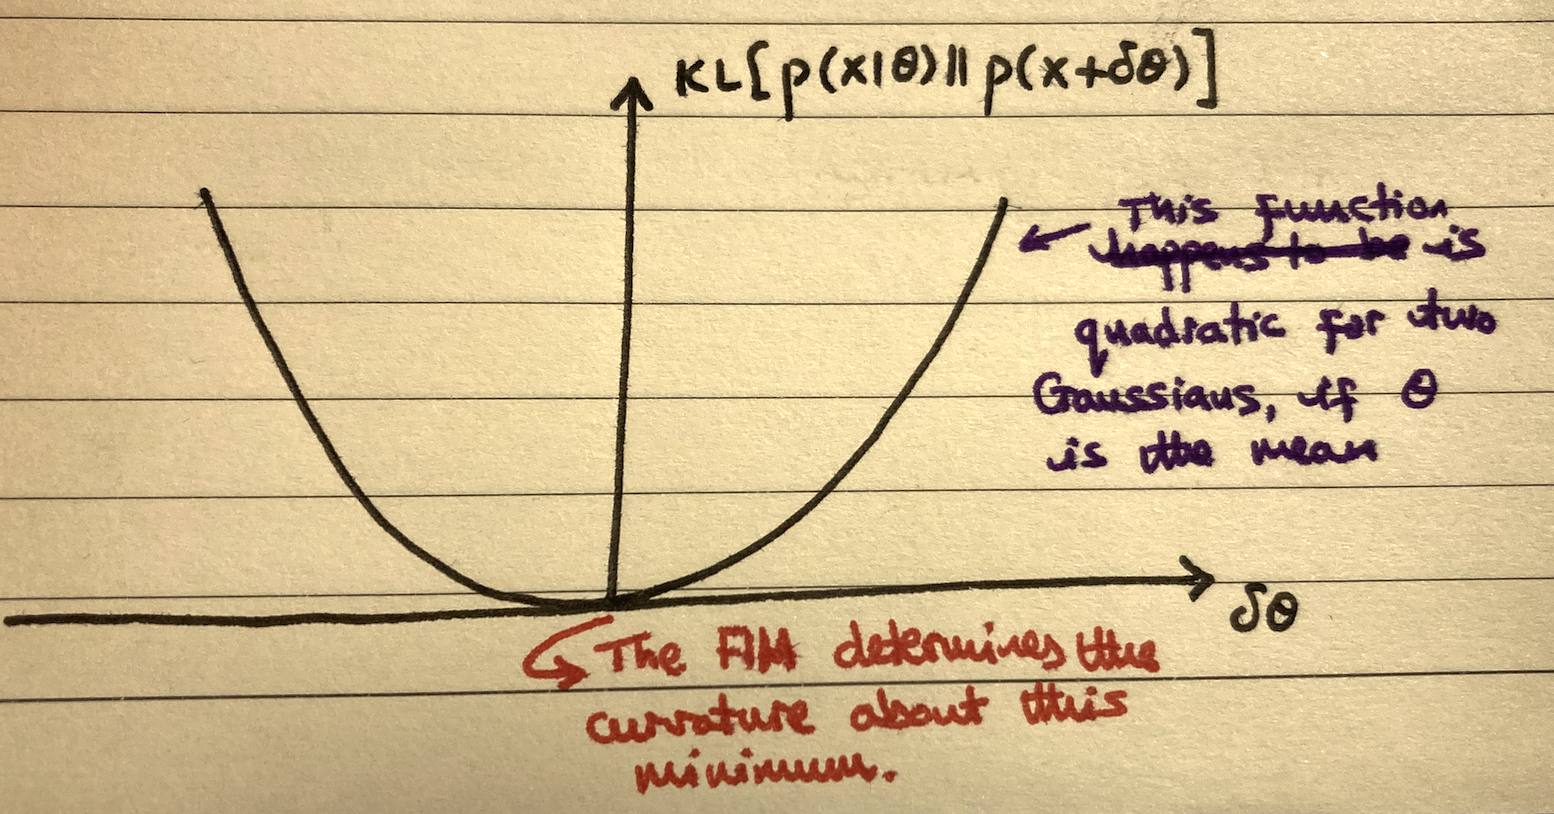 KL[p(x|θ)||p(x+δθ)]
This function
happens to be is
quadratic for two
Gaussians, if θ
is the mean
δθ
The FIM determines the
curvature about this
minimum.